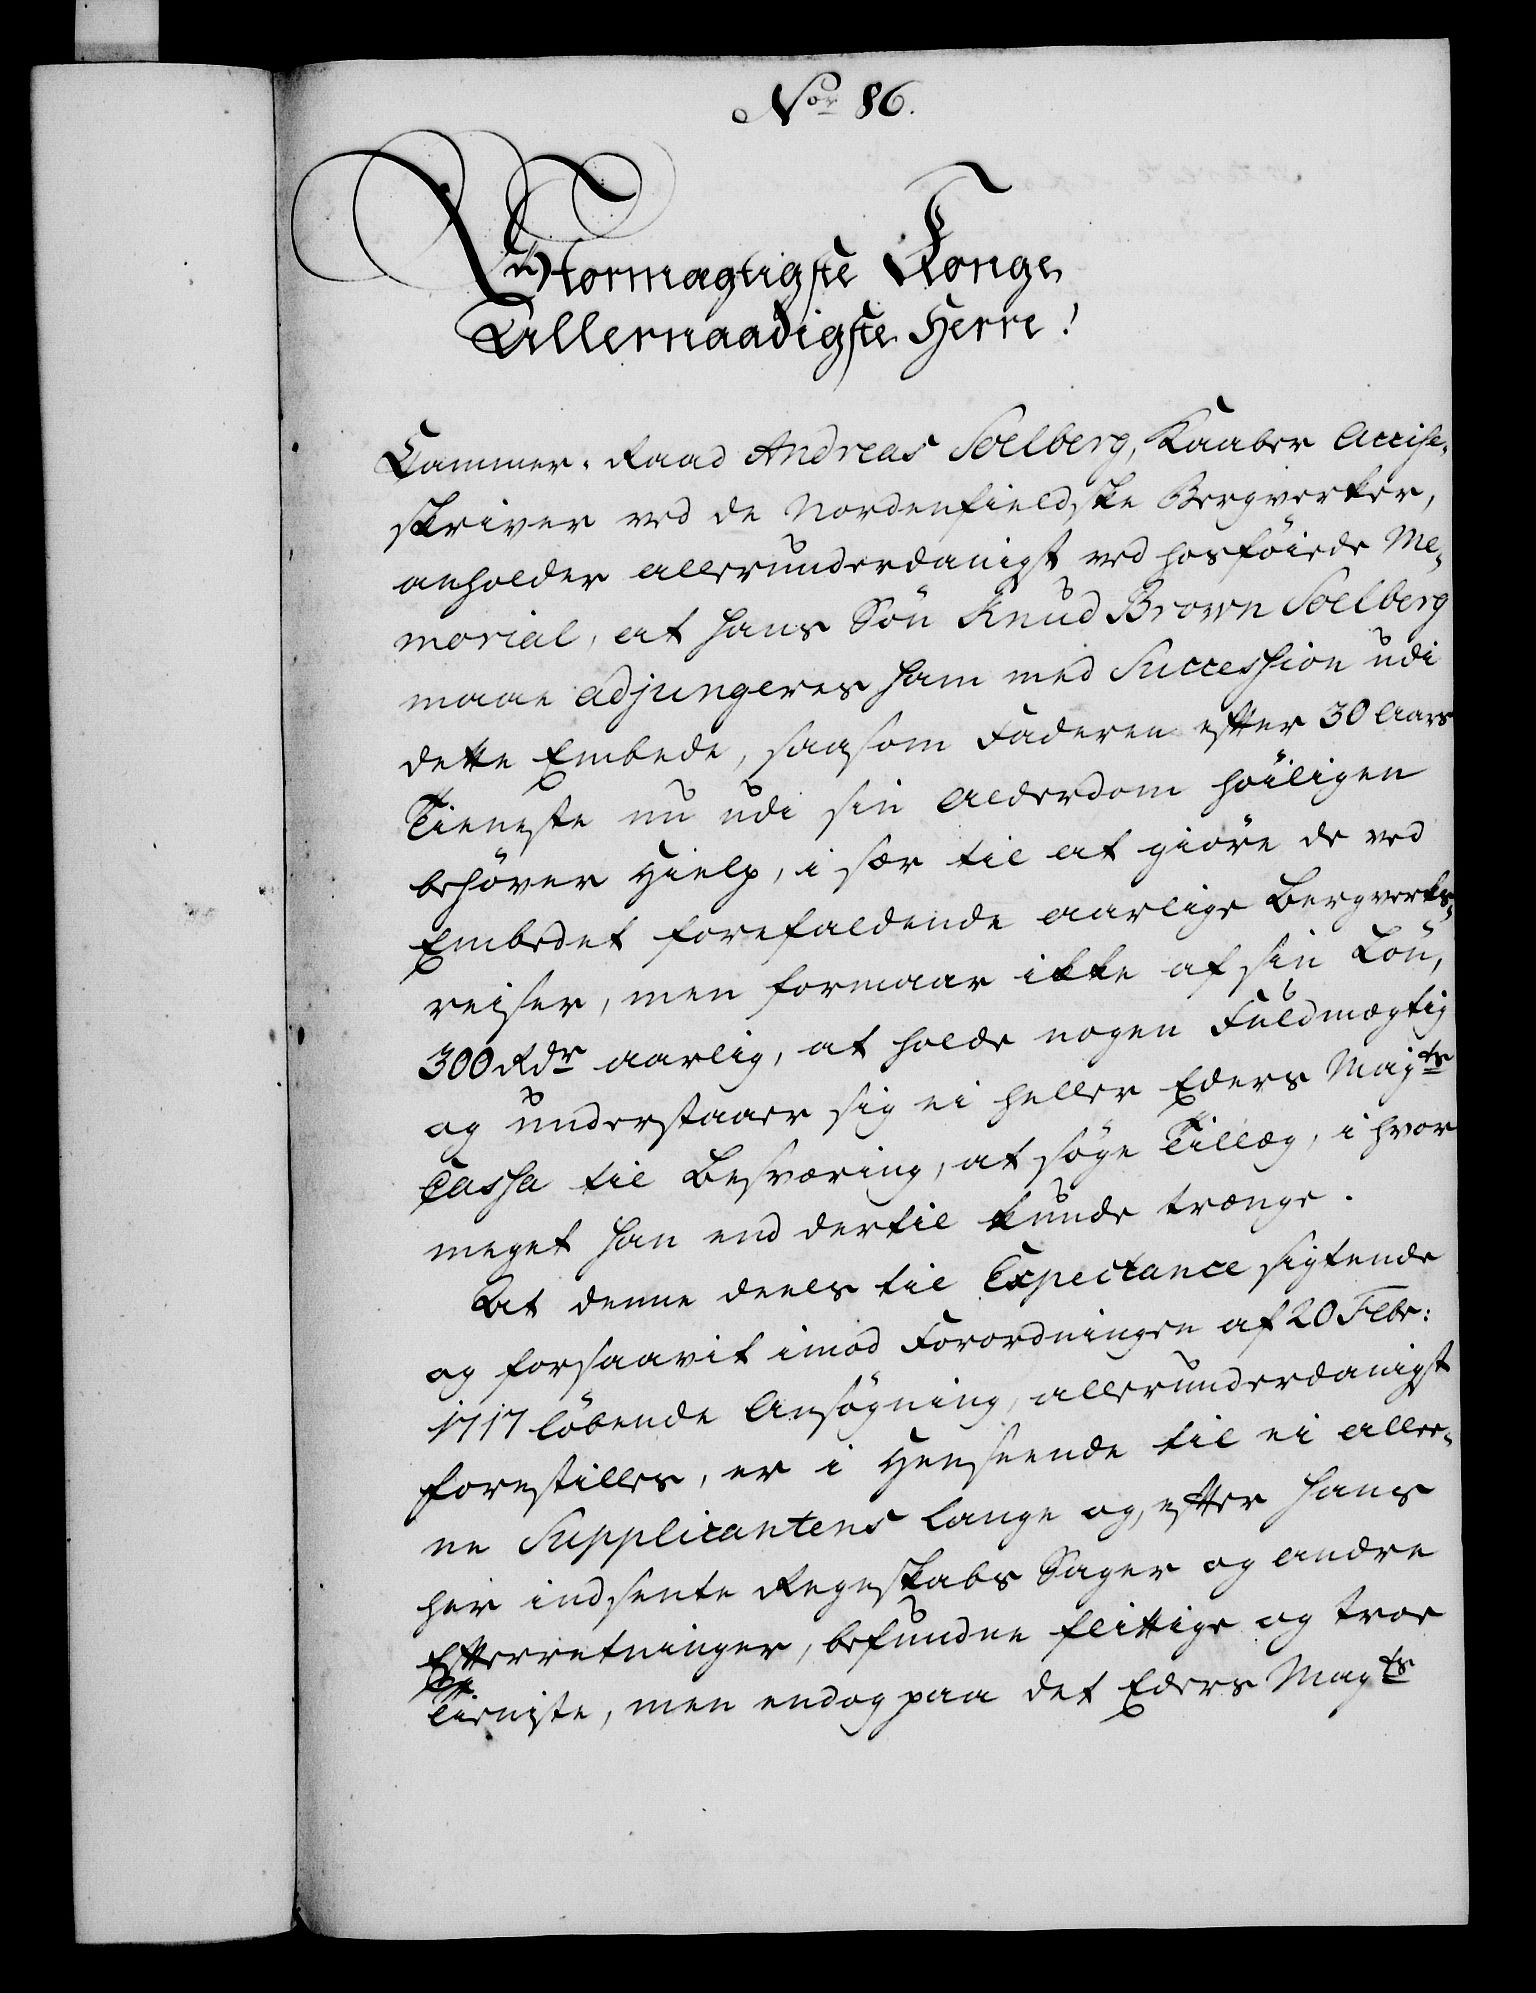 Nor 86.
Stormægtigste Konge
Allernaadigste Herre!
Cammer-Raad Andreas Soelberg, Kaaber Accise-
skriver ved de Nordenfieldske Bergverker,
anholder allerunderdanigst ved hosföiede Me-
morial, at hans Sön Knud Brown Soelberg
maae adjungeres ham med Succession udi
dette Embede, saasom Faderen efter 30 Aars
Tieneste nu udi sin Alderdom höiligen
behöver Hielp, i sær til at giöre de ved
Embedet forefaldende aarlige Bergverks-
reiser, men formaar ikke af sin Lön,
300 Rdr aarlig, at holde nogen Fuldmægtig
og understaaer sig ei heller Eders Majts
Cassa til Besværing, at söge Tillæg, i hvor
meget han end dertil kunde trænge.
At denne deels til Expectance sigtende
og forsaavit imod Forordningen af 20 Febr:
1717 löbende Ansögning, allerunderdanigst
forestilles, er i Henseende til ei alle-
ne Supplicantens lange og, efter hans
her indsente Regnskabs Sager og andre
Efterretninger, befundne flittige og troe
Tieniste, men endog paa det Eders Majts